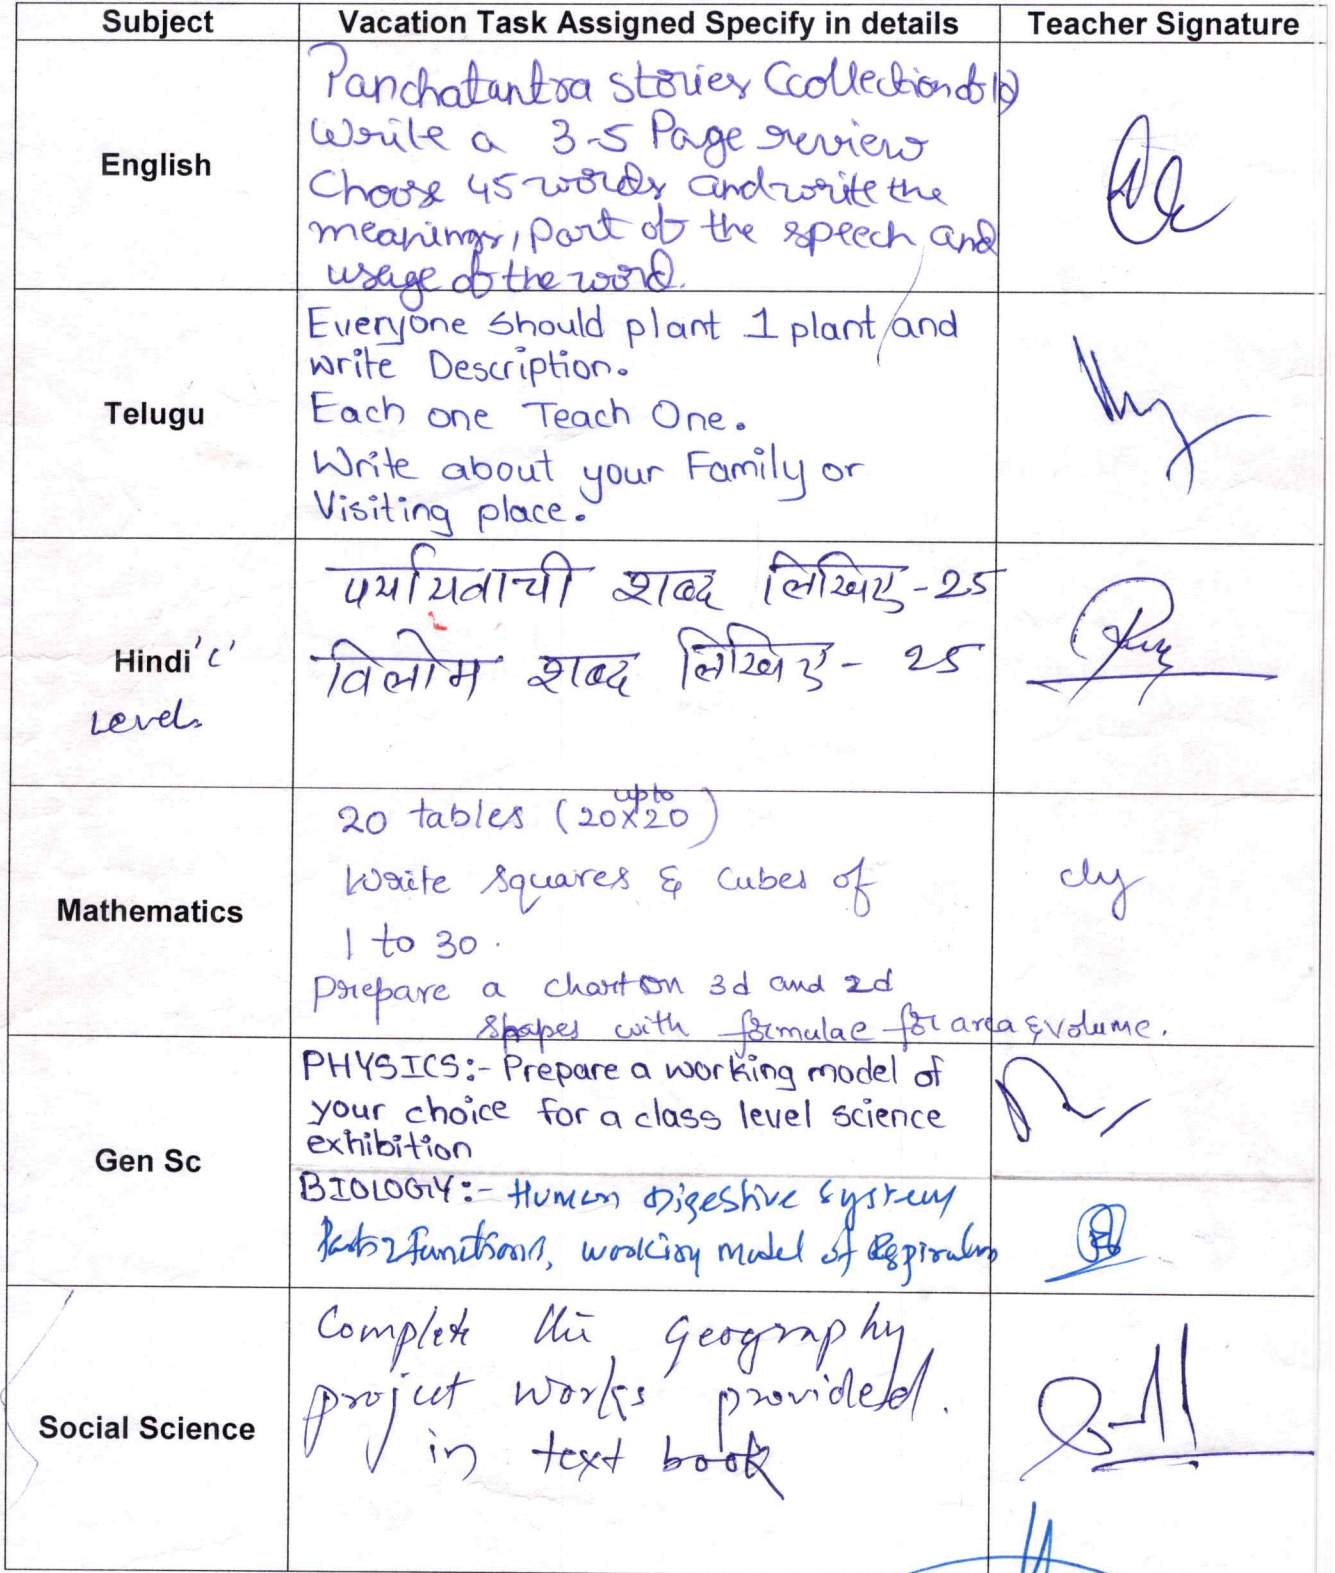 Subject Vacation Task Assigned Specify in details Teacher Signature
English
Panchatantra stories (collection of 10)
Write a 3-5 Page review
Choose 45 words and write the
meanings, part of the speech and
usage of the word.
Telugu
Everyone should plant 1 plant and
write Description.
Each one Teach One.
Write about your Family or
Visiting place.
Hindi 'C'
Level.
पर्यायवाची शब्द लिखिए - 25
विलोम शब्द लिखिए - 25
Mathematics
upto
20 tables (20x20)
Write squares & cubes of
1 to 30.
Prepare a chart on 3d and 2d
shapes with formulae for area & volume.
Gen Sc
PHYSICS:- Prepare a working model of
your choice for a class level science
exhibition
BIOLOGY:- Human Digestive system
Parts & Functions, working model of Respiration
Social Science
Complete the Geography
project works provided.
in text book